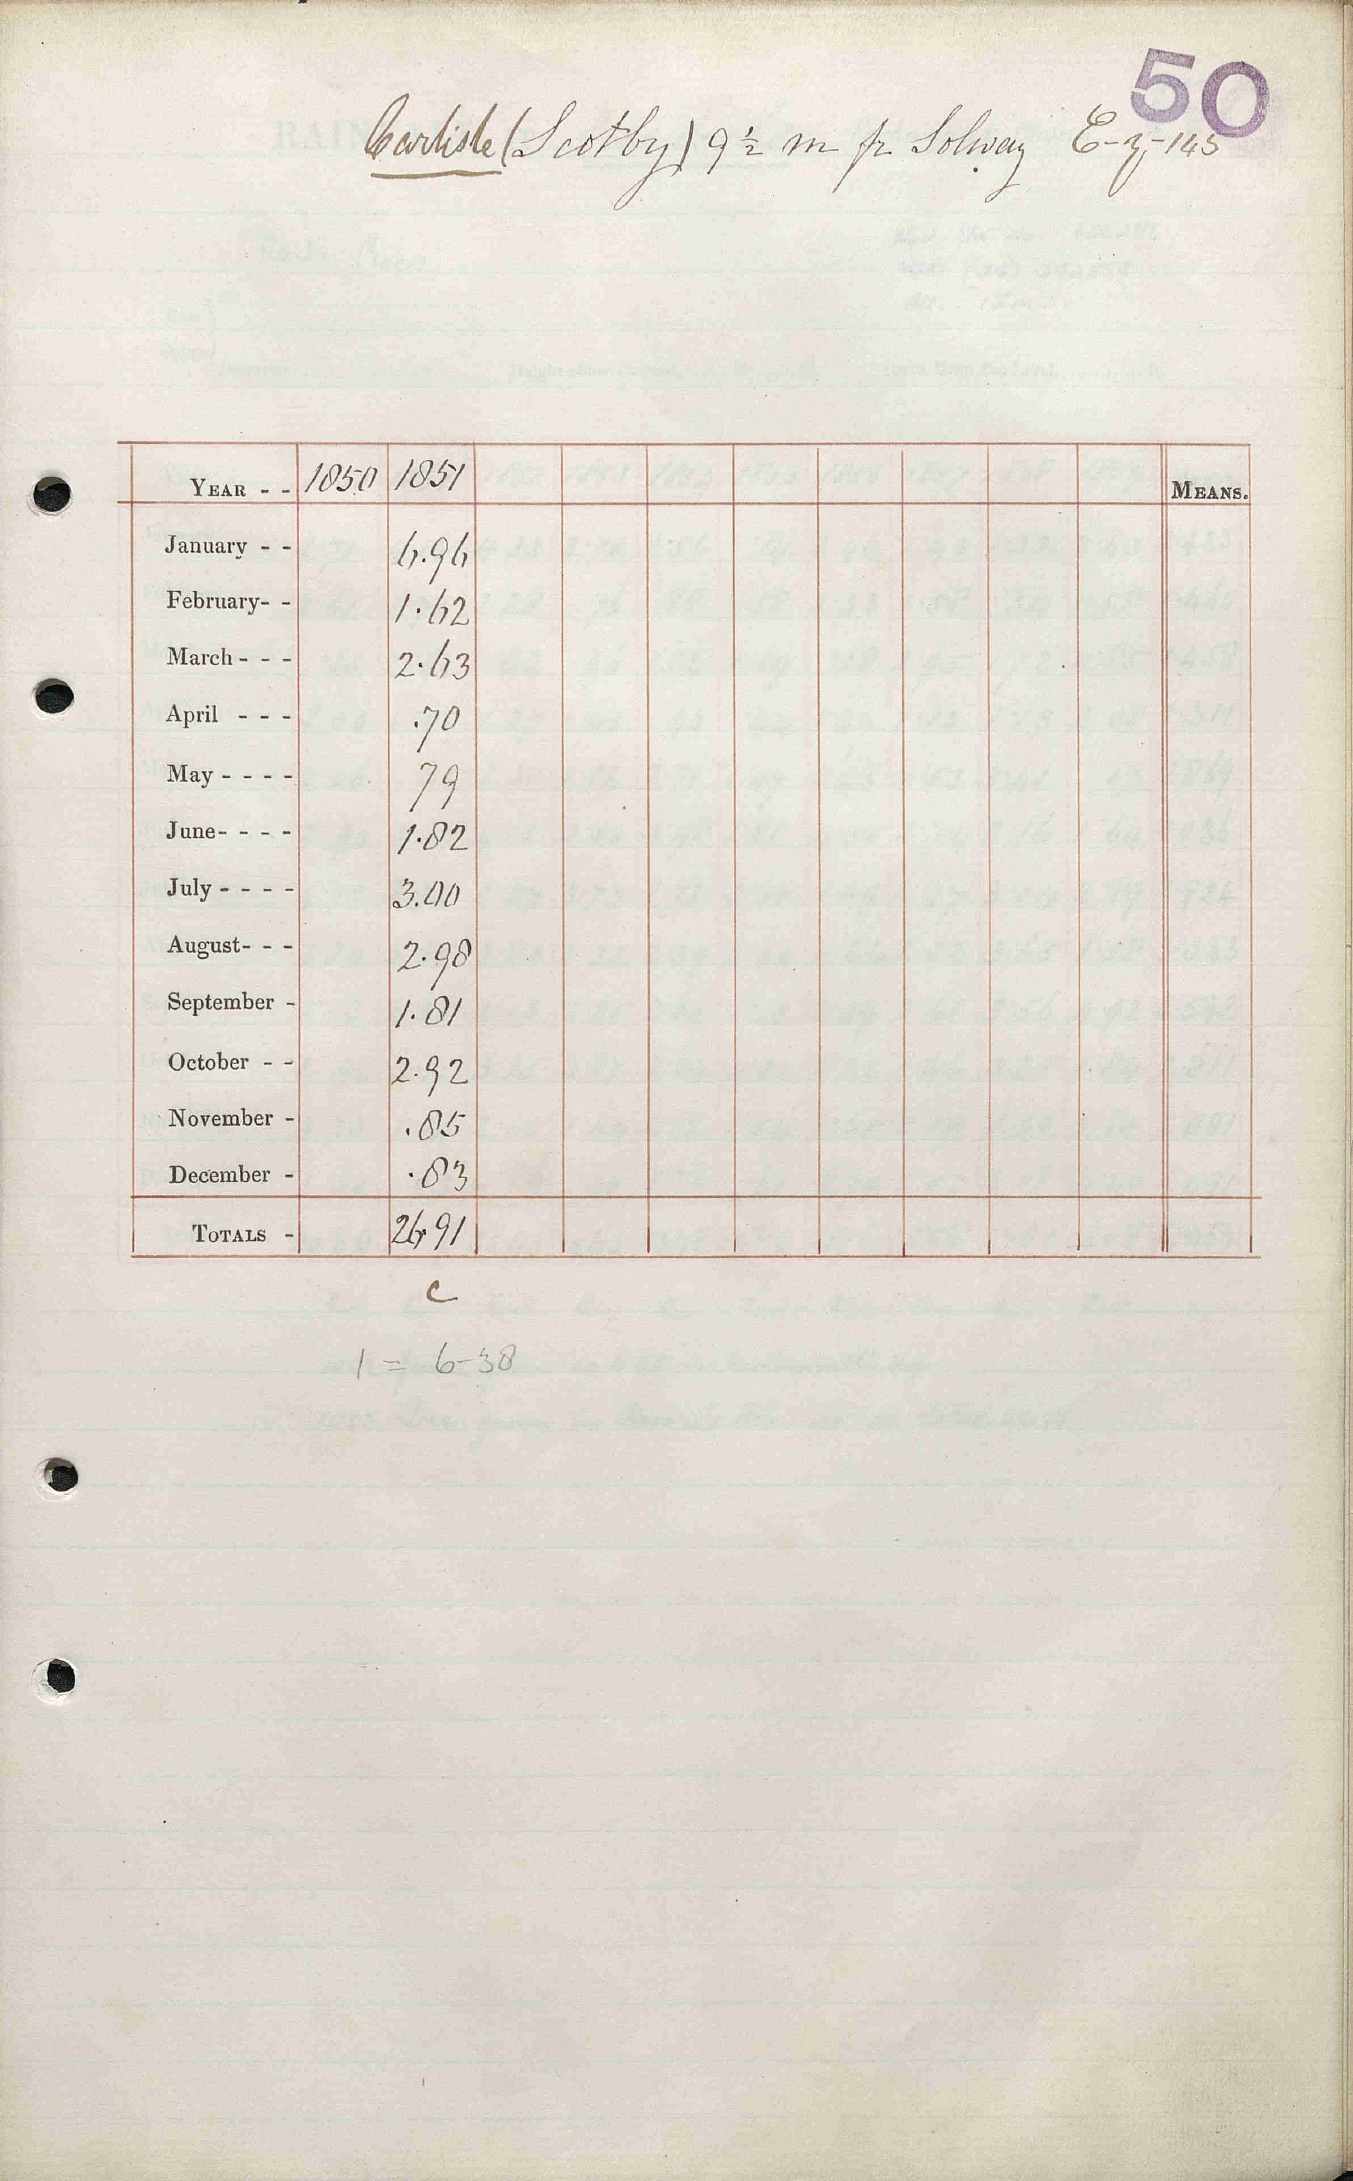 50
Carlisle (Scotby) 9½ m fr Solway E-z-145
YEAR - - 1850 1851 MEANS.
January - - 6.96
February- - 1.62
March - - - 2.63
April - - - .70
May - - - - 79
June- - - - 1.82
July - - - - 3.00
August- - - 2.98
September - 1.81
October - - 2.92
November - .85
December - .83
TOTALS - 26.91
C
1 = 6-38